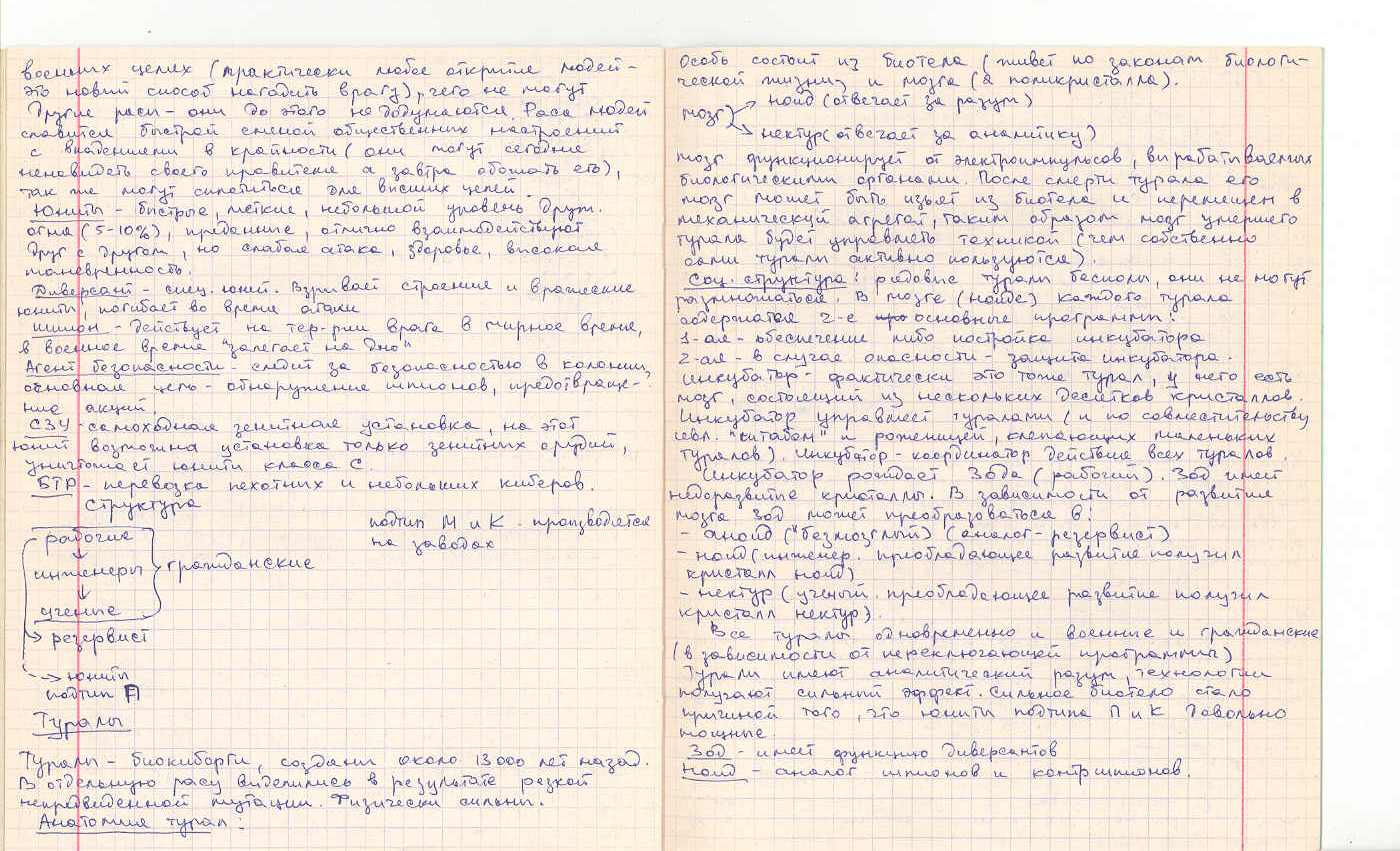 военных целях (практически любое открытие людей -
это новый способ нагадить врагу), чего не могут
другие расы - они до этого не додумаются. Раса людей
славится быстрой сменой общественных настроений
с впадениями в крайности (они могут сегодня
ненавидеть своего правителя а завтра обожать его),
так же могут сплотиться для высших целей.
Юниты - быстрые, меткие, небольшой уровень друж.
огня (5-10%), преданные, отлично взаимодействуют
друг с другом, но слабые атака, здоровье, высокая
маневренность.
Диверсант - спец. юнит. Взрывает строения и вражеские
юниты, погибает во время атаки
Шпион - действует на тер-рии врага в мирное время,
в военное время "залегает на дно"
Агент безопасности - следит за безопасностью в колонии,
основная цель - обнаружение шпионов, предотвраще-
ние акций
СЗУ - самоходная зенитная установка, на этот
юнит возможна установка только зенитных орудий,
уничтожает юниты класса С.
БТР - перевозка пехотных и небольших киберов.
Структура
рабочие
инженеры
ученые
гражданские
подтип М и К - производятся
на заводах
резервист
юниты
подтип П
Туралы
Туралы - биокиборги, созданы около 13000 лет назад.
В отдельную расу выделились в результате резкой
непредвиденной мутации. Физически сильны.
Анатомия турал:
Особь состоит из биотела (живет по законам биологи-
ческой жизни) и мозга (2 поликристалла).
мозг
ноид (отвечает за разум)
нектур (отвечает за аналитику)
мозг функционирует от электроимпульсов, вырабатываемых
биологическими органами. После смерти турала его
мозг может быть изъят из биотела и перемещен в
механический агрегат, таким образом мозг умершего
турала будет управлять техникой (чем собственно
сами туралы активно пользуются).
Соц. структура: рядовые туралы бесполы, они не могут
размножаться. В мозге (ноиде) каждого турала
содержатся 2-е основные программы:
1-ая - обеспечение либо постройка инкубатора
2-ая - в случае опасности - защита инкубатора.
Инкубатор - фактически это тоже турал, у него есть
мозг, состоящий из нескольких десятков кристаллов.
Инкубатор управляет туралами (и по совместительству
явл. "штабом" и роженицей, клепающих маленьких
туралов). Инкубатор - координатор действия всех туралов.
Инкубатор рождает Зода (рабочий). Зод имеет
недоразвитые кристаллы. В зависимости от развития
мозга Зод может преобразоваться в:
- аноид ("безмозглый") (аналог - резервист)
- ноид (инженер. преобладающее развитие получил
кристалл ноид)
- нектур (ученый. преобладающее развитие получил
кристалл нектур).
Все туралы одновременно и военные и гражданские
(в зависимости от переключающей программы)
Туралы имеют аналитический разум, технологии
получают сильный эффект. Сильное биотело стало
причиной того, что юниты подтипа П и К довольно
мощные.
Зод - имеет функцию диверсантов
Ноид - аналог шпионов и контршпионов.